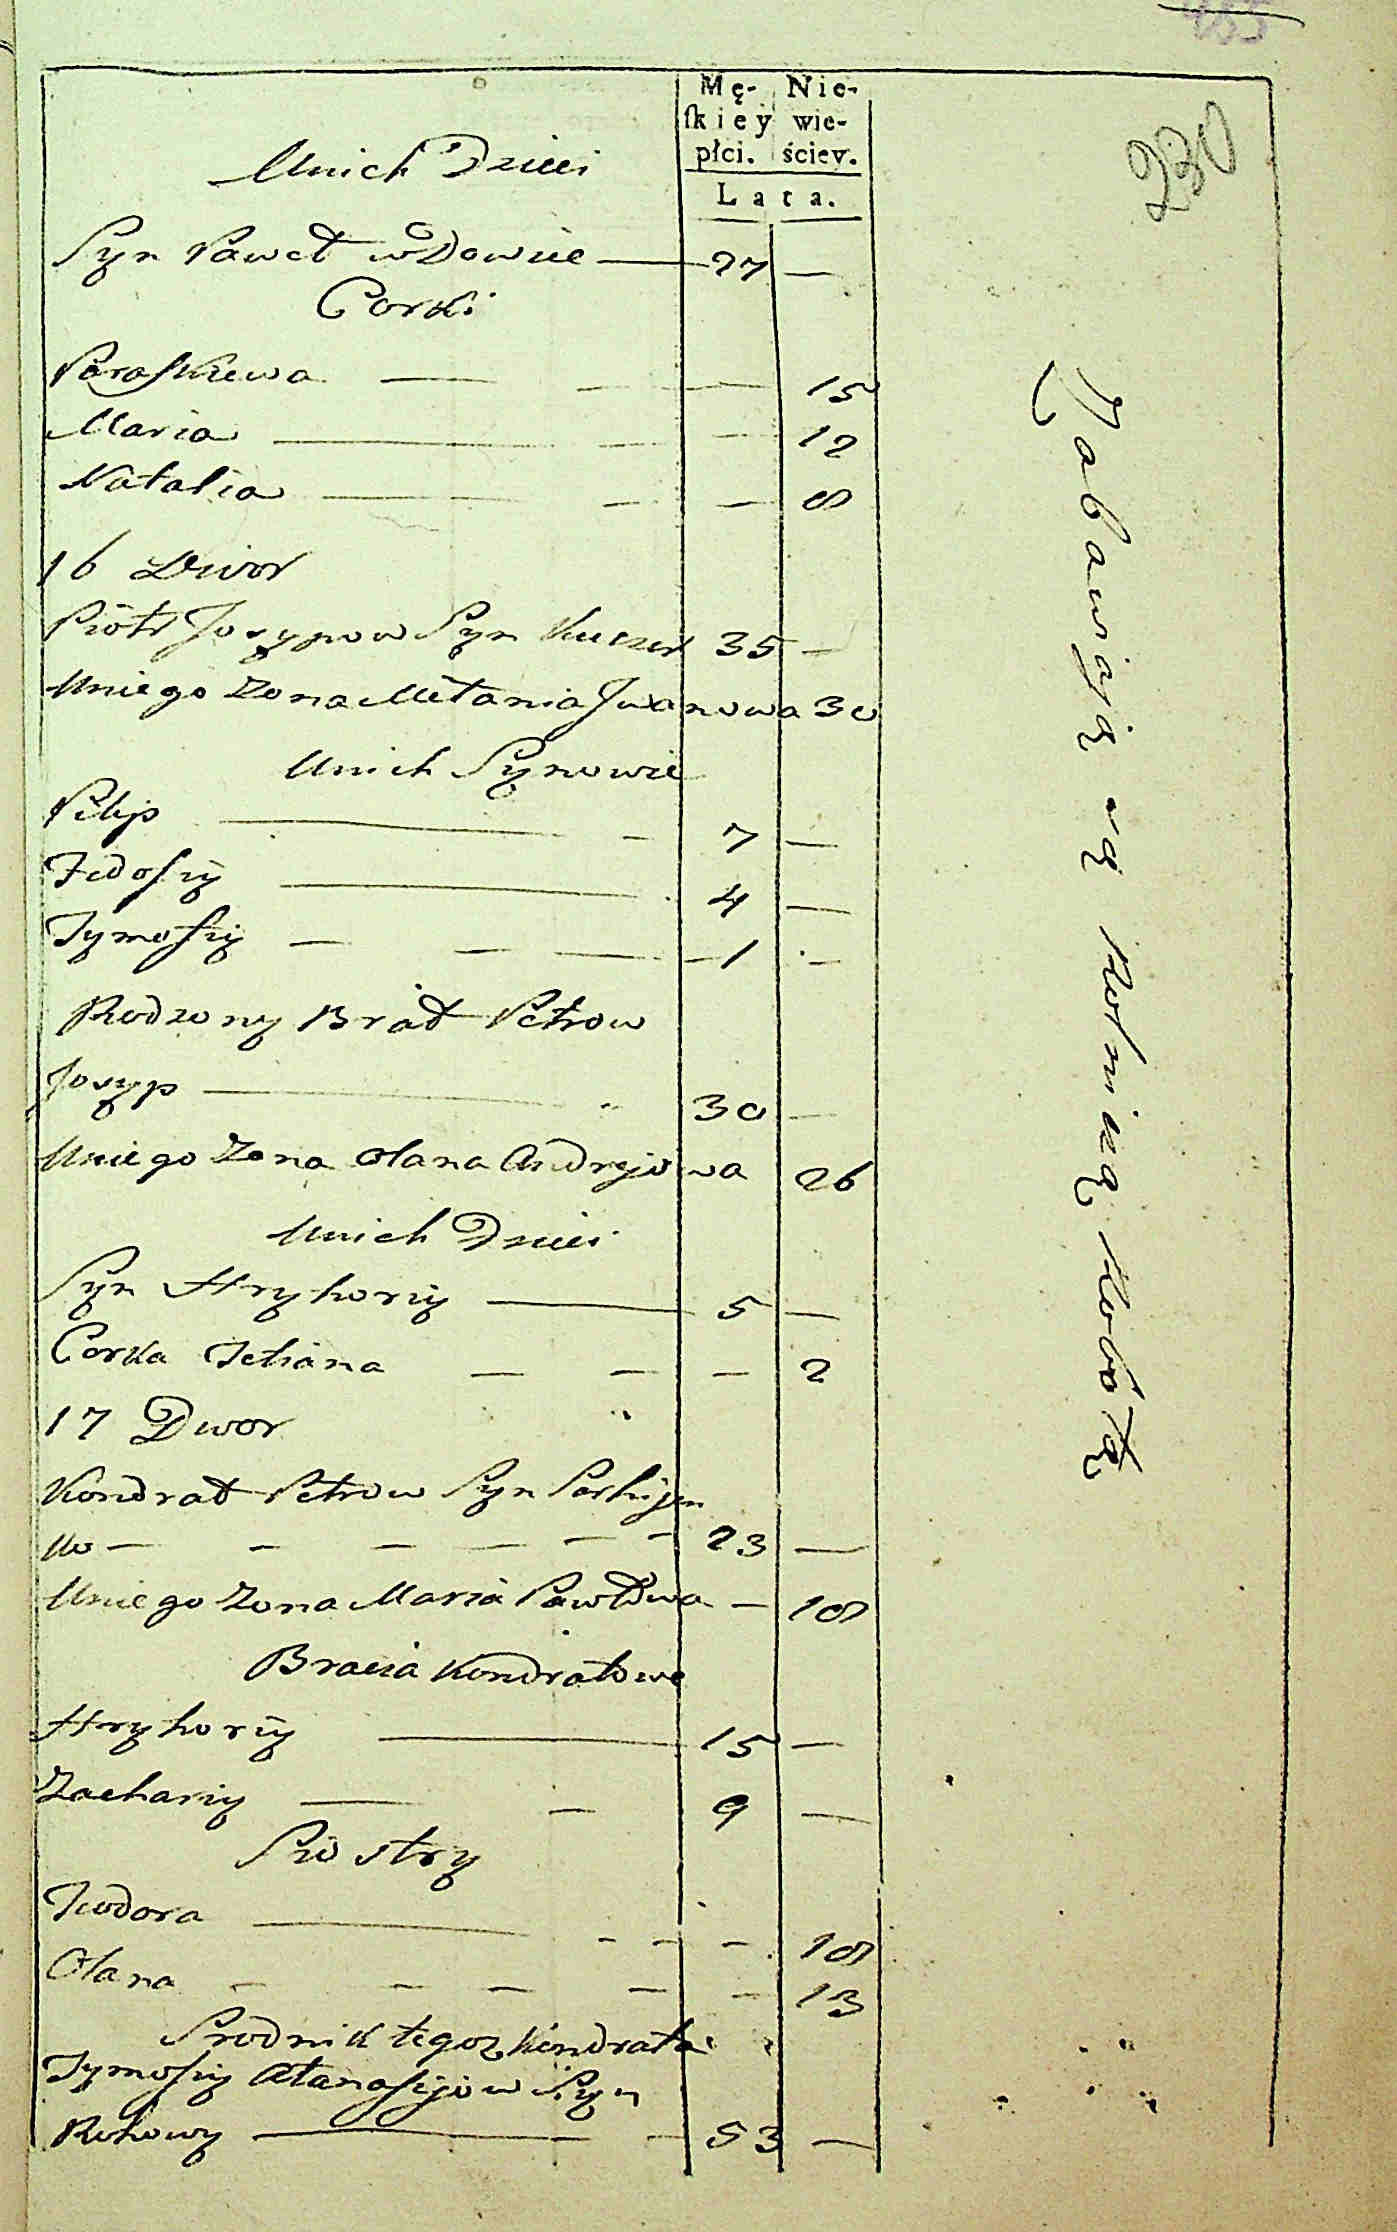 230
Mę-
skiey
płci.
Nie-
wie-
ściey.
Lata.
Unich Dzieci
Syn Paweł wDowiec — 27 —
Corki
Paraskiewa — — — 15
Maria — — — 12
Natalia — — — 8
16 Dwor
Piotr Josypow Syn Kuczer 35 —
Uniego Zona Mełania Jwanowa 30
Unich Synowie
Pilip — — 7 —
Fedosiy — 4 —
Tymofiy — — — 1 —
Rodzony Brat Petrow
Josyp — 30 —
Uniego Zona Ołana Andrejowa 26
Unich Dzieci
Syn Hryhoriy — 5 —
Corka Tetiana — — — 2
17 Dwor
Kondrat Petrow Syn Parhijen
ko — — — — — — 23 —
Uniego Zona Maria Pawłowa — 18
Bracia Kondratowe
Hryhoriy — 15 —
Zachariy — — 9 —
Siostry
Teodora — — — — 18
Ołana — — — — — 13
Srodnik tegoz Kondrata
Tymofiy Atanasijow Syn
Rohowy — — 53 —
Zabawiają się Rolniczą Robotą